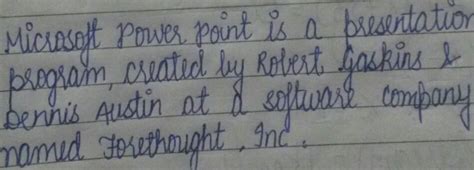 Microsoft Power Point is a presentation
program, created by Robert Gaskins &
Dennis Austin at a software company
named Forethought, Inc.